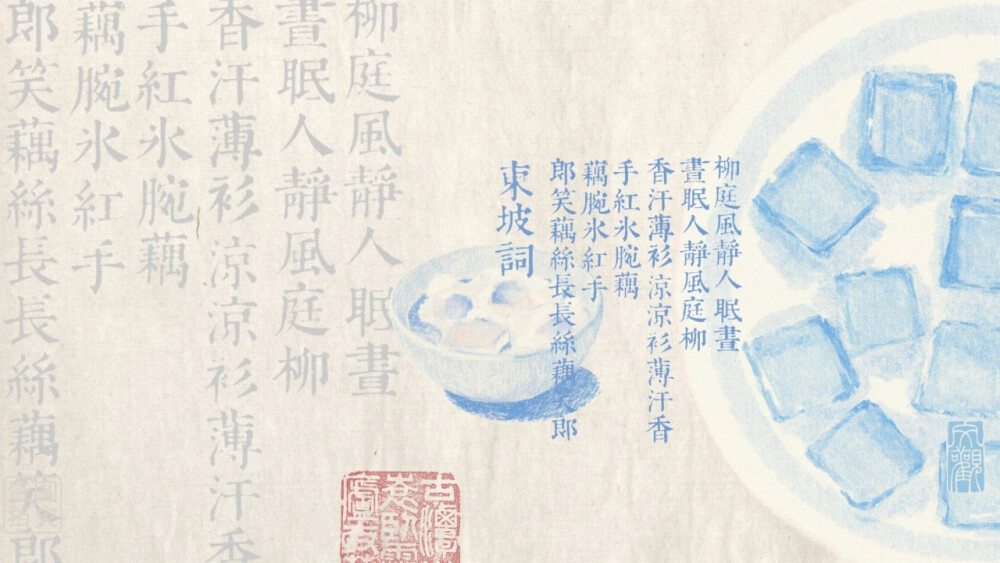 柳庭風靜人眠晝
晝眠人靜風庭柳
香汗薄衫涼涼衫薄汗香
手紅氷腕藕
藕腕氷紅手
郎笑藕絲長長絲藕笑郎
東坡詞
大觀
柳庭風靜人眠晝
晝眠人靜風庭柳
香汗薄衫涼涼衫薄汗香
手紅氷腕藕
藕腕氷紅手
郎笑藕絲長長絲藕笑郎